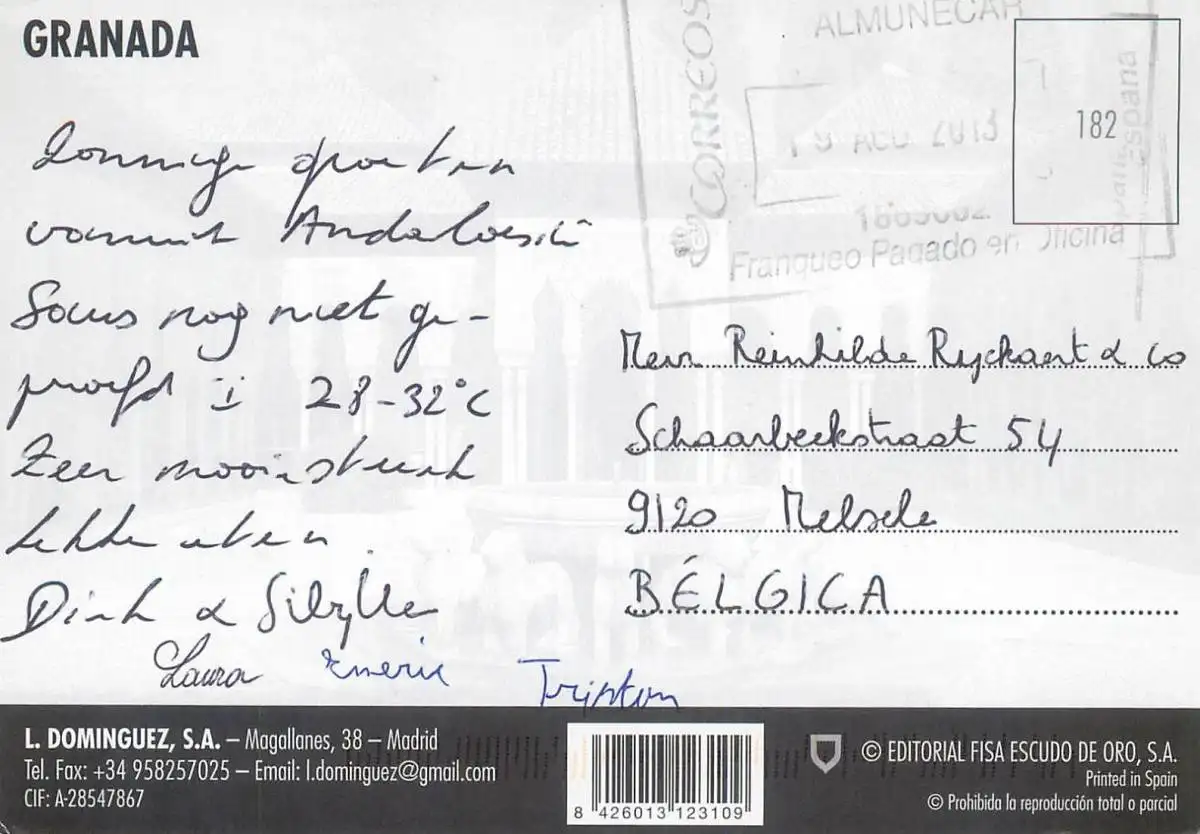 GRANADA
Zonnige groeten
vanuit Andaloesië
Saus nog niet ge-
proefd ± 28-32°C
Zeer mooi strand
Lekker eten.
Dirk & Sibylle
Laura Emeric
CORREOS
ALMUÑECAR
AGO 2013
Franqueo Pagado en Oficina
España
182
Mevr Reinhilde Ryckaert & Co
Schaarbeekstraat 54
9120 Melsele
BÉLGICA
L. DOMINGUEZ, S.A. – Magallanes, 38 – Madrid
Tel. Fax: +34 958257025 – Email: l.dominguez@gmail.com
CIF: A-28547867
8 426013 123109
© EDITORIAL FISA ESCUDO DE ORO, S.A.
Printed in Spain
© Prohibida la reproducción total o parcial